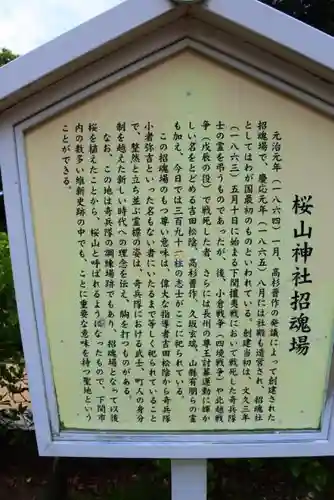 桜山神社招魂場
元治元年(一八六四)一月、高杉晋作の発議によって創建された
招魂場で、慶応元年(一八六五)八月には社殿も造営され、招魂社
としてはわが国最初のものといわれている。創建当初は、文久三年
(一八六三)五月十日に始まる下関攘夷戦において戦死した奇兵隊
士の霊を弔うものであったが、後、小倉戦争(四境戦争)や北越戦
争(戊辰の役)で戦死した者、さらには長州の尊王討幕運動に輝か
しい名をとどめる吉田松陰、高杉晋作、久坂玄瑞、山縣有朋らの霊
も加え、今日では三百九十一柱の志士がここに祀られている。
この招魂場のもつ尊い意味は、偉大な指導者吉田松陰から奇兵隊
小者弥吉といった名もない者にいたるまで等しく祀られていること
で、整然と立ち並ぶ霊標の姿は、奇兵隊における武士、町人の身分
制を越えた新しい時代への理念を伝え、胸を打つものがある。
なお、この地は奇兵隊の調練場跡でもあり、招魂場となって以後
桜を植えたことから、桜山と呼ばれるようになったもので、下関市
内の数多い維新史跡の中でも、ことに重要な意味を持つ聖地という
ことができる。